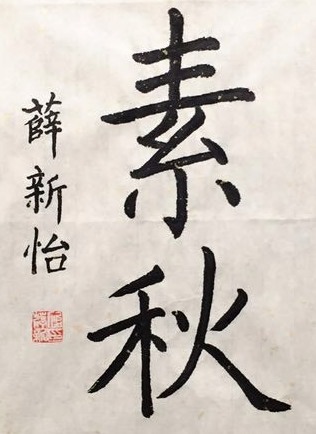 素秋
薛新怡